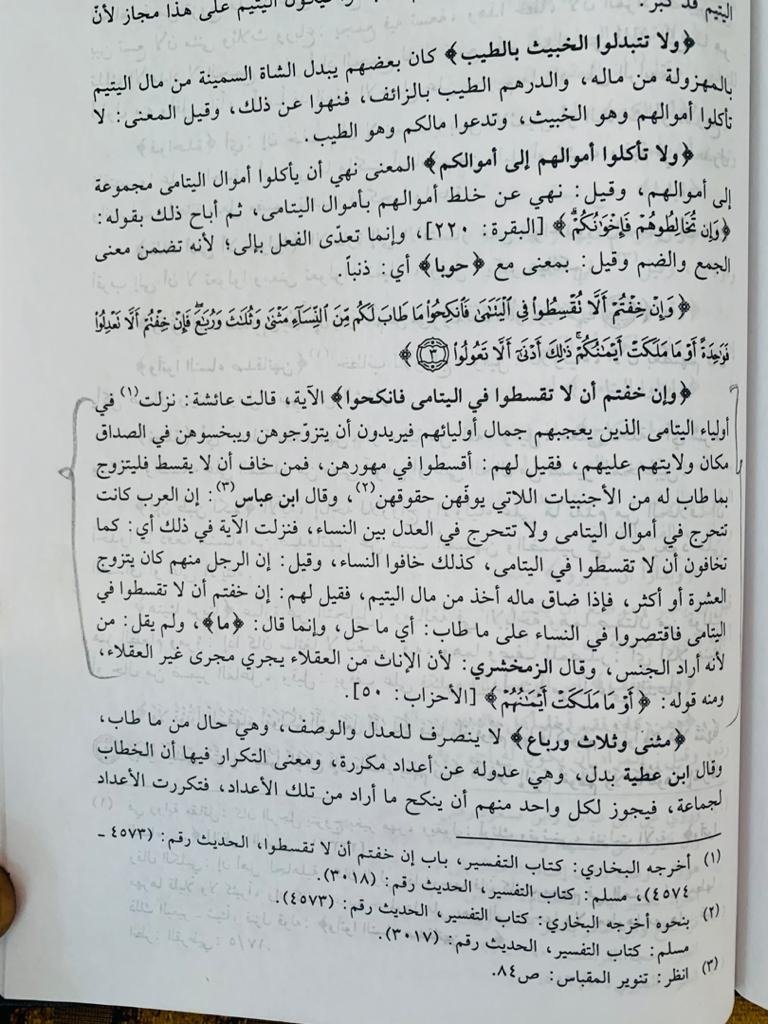 اليتيم قد كبر.
يكون اليتيم على هذا مجاز لأنّ
﴿ولا تتبدلوا الخبيث بالطيب﴾ كان بعضهم يبدل الشاة السمينة من مال اليتيم
بالمهزولة من ماله، والدرهم الطيب بالزائف، فنهوا عن ذلك، وقيل المعنى: لا
تأكلوا أموالهم وهو الخبيث، وتدعوا مالكم وهو الطيب.
﴿ولا تأكلوا أموالهم إلى أموالكم﴾ المعنى نهي أن يأكلوا أموال اليتامى مجموعة
إلى أموالهم، وقيل: نهي عن خلط أموالهم بأموال اليتامى، ثم أباح ذلك بقوله:
﴿وَإِن تُخَالِطُوهُمْ فَإِخْوَانُكُمْ﴾ [البقرة: ٢٢٠]، وإنما تعدّى الفعل بإلى؛ لأنه تضمن معنى
الجمع والضم وقيل: بمعنى مع ﴿حوبا﴾ أي: ذنباً.
﴿وَإِنْ خِفْتُمْ أَلَّا تُقْسِطُوا۟ فِى ٱلْيَتَٰمَىٰ فَٱنكِحُوا۟ مَا طَابَ لَكُم مِّنَ ٱلنِّسَآءِ مَثْنَىٰ وَثُلَٰثَ وَرُبَٰعَ ۖ فَإِنْ خِفْتُمْ أَلَّا تَعْدِلُوا۟
فَوَٰحِدَةً أَوْ مَا مَلَكَتْ أَيْمَٰنُكُمْ ۚ ذَٰلِكَ أَدْنَىٰٓ أَلَّا تَعُولُوا۟ ٣﴾
﴿وإن خفتم أن لا تقسطوا في اليتامى فانكحوا﴾ الآية، قالت عائشة: نزلت(١) في
أولياء اليتامى الذين يعجبهم جمال أوليائهم فيريدون أن يتزوّجوهن ويبخسوهن في الصداق
مكان ولايتهم عليهم، فقيل لهم: أقسطوا في مهورهن، فمن خاف أن لا يقسط فليتزوج
بما طاب له من الأجنبيات اللاتي يوفّهن حقوقهن(٢)، وقال ابن عباس(٣): إن العرب كانت
تتحرج في أموال اليتامى ولا تتحرج في العدل بين النساء، فنزلت الآية في ذلك أي: كما
تخافون أن لا تقسطوا في اليتامى، كذلك خافوا النساء، وقيل: إن الرجل منهم كان يتزوج
العشرة أو أكثر، فإذا ضاق ماله أخذ من مال اليتيم، فقيل لهم: إن خفتم أن لا تقسطوا في
اليتامى فاقتصروا في النساء على ما طاب: أي ما حل، وإنما قال: ﴿ما﴾، ولم يقل: من
لأنه أراد الجنس، وقال الزمخشري: لأن الإناث من العقلاء يجري مجرى غير العقلاء،
ومنه قوله: ﴿أَوْ مَا مَلَكَتْ أَيْمَٰنُهُمْ﴾ [الأحزاب: ٥٠].
﴿مثنى وثلاث ورباع﴾ لا ينصرف للعدل والوصف، وهي حال من ما طاب،
وقال ابن عطية بدل، وهي عدوله عن أعداد مكررة، ومعنى التكرار فيها أن الخطاب
لجماعة، فيجوز لكل واحد منهم أن ينكح ما أراد من تلك الأعداد، فتكررت الأعداد
(١) أخرجه البخاري: كتاب التفسير، باب إن خفتم أن لا تقسطوا، الحديث رقم: (٤٥٧٣ -
٤٥٧٤)، مسلم: كتاب التفسير، الحديث رقم: (٣٠١٨).
(٢) بنحوه أخرجه البخاري: كتاب التفسير، الحديث رقم: (٤٥٧٣).
مسلم: كتاب التفسير، الحديث رقم: (٣٠١٧).
(٣) انظر: تنوير المقباس: ص٨٤.